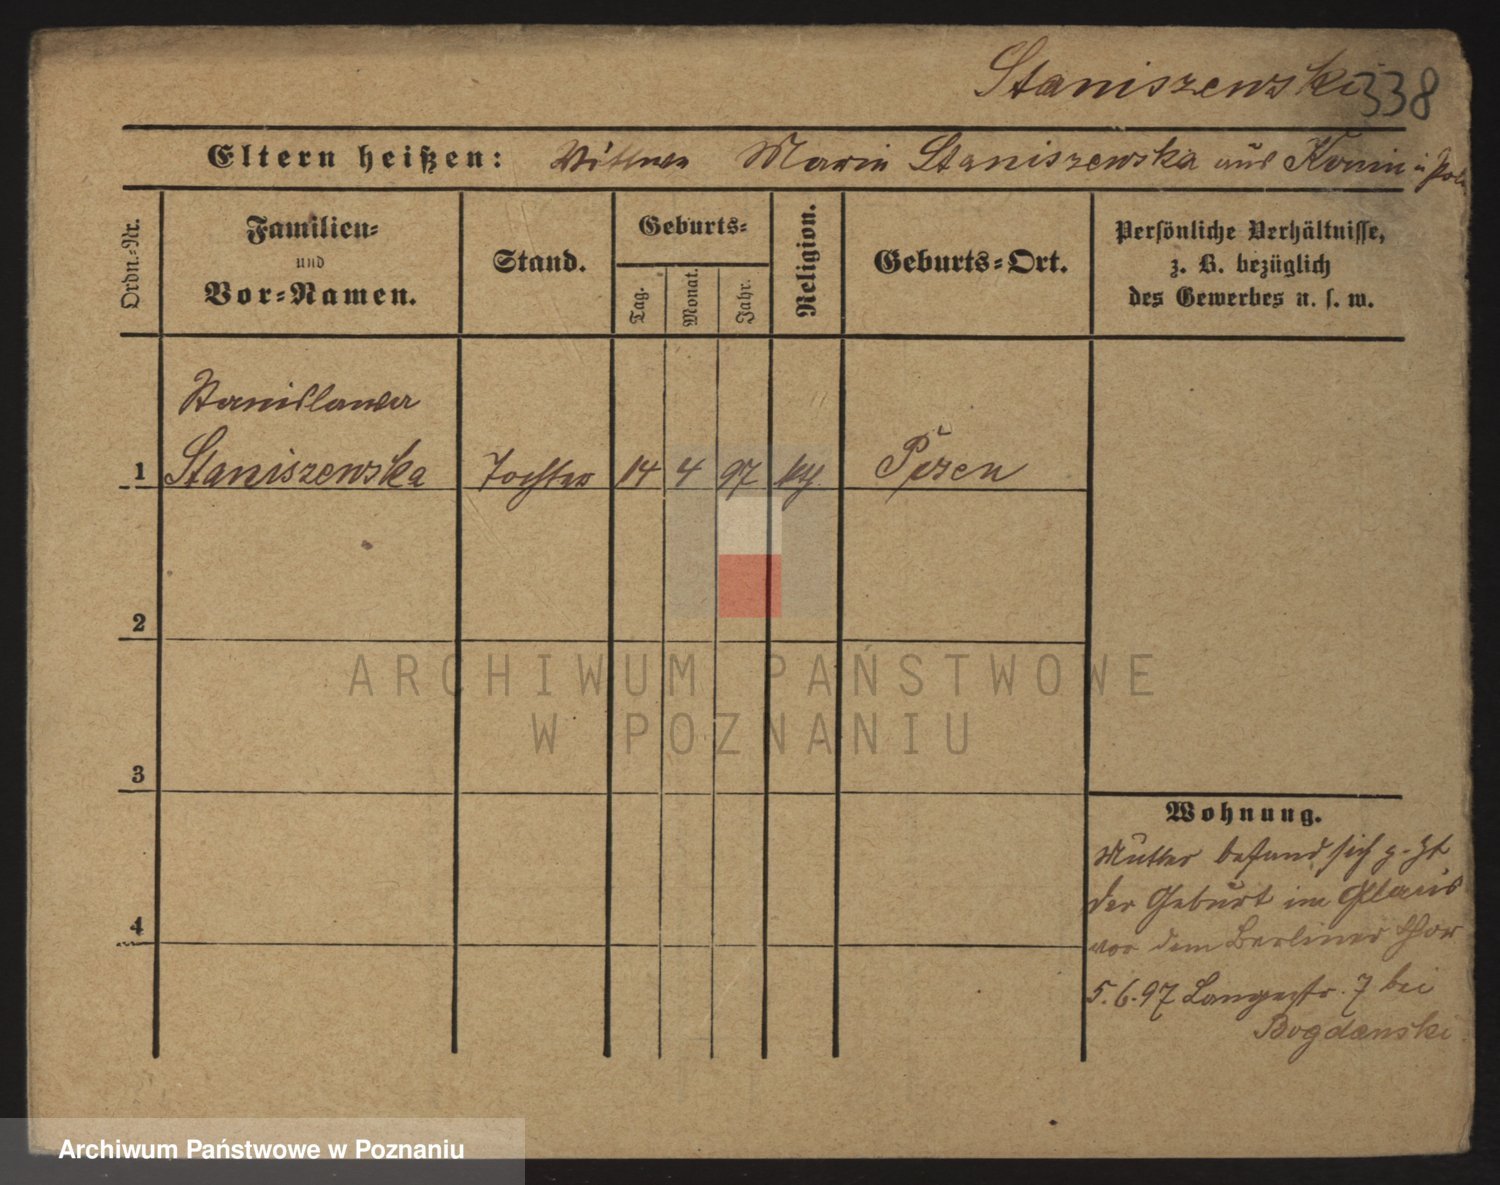 Staniszewski 338
Eltern heißen: Wittwe Maria Staniszewska aus Konin i Pol
Ordn.-Nr.
Familien-
und
Vor-Namen.
Stand.
Geburts-
Tag.
Monat.
Jahr.
Religion.
Geburts-Ort.
Persönliche Verhältnisse,
z. B. bezüglich
des Gewerbes u. s. w.
Stanislawa
1 Staniszewska Tochter 14 4 97 kth Posen
2
3
4
Wohnung.
Mutter befand sich z. Zt
der Geburt im
vor dem Berliner Thor
5.6.97 Langestr. 7 bei
Bogdanski
ARCHIWUM PAŃSTWOWE
W POZNANIU
Archiwum Państwowe w Poznaniu